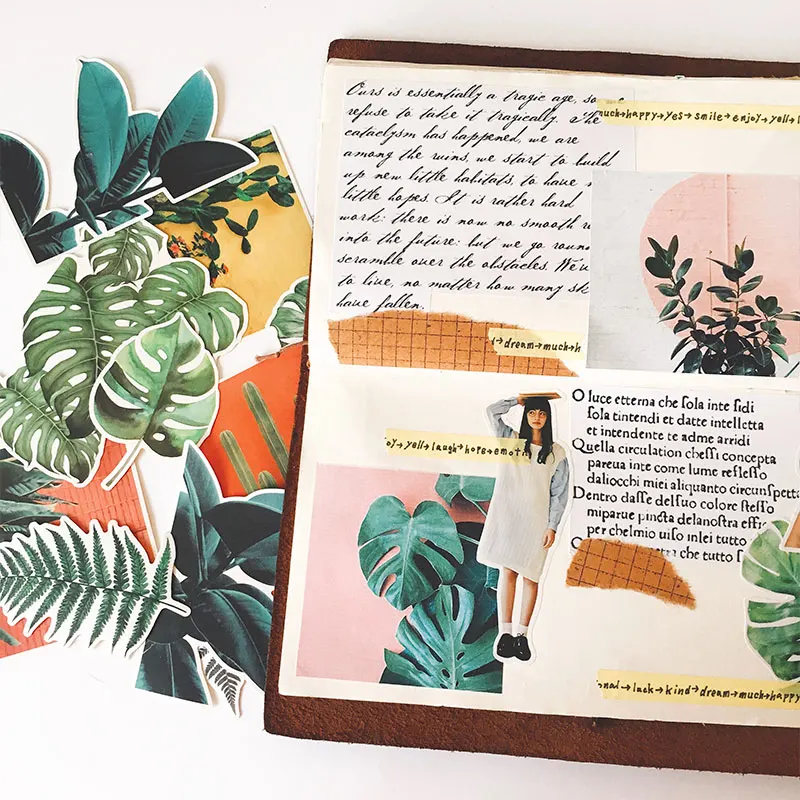 Ours is essentially a tragic age, so
refuse to take it tragically. The
cataclysm has happened, we are
among the ruins, we start to build
up new little habitats, to have
little hopes. It is rather hard
work: there is now no smooth
into the future: but we go roun
scramble over the obstacles. We'v
to live, no matter how many sk
have fallen.
much→happy→yes→smile→enjoy→yell→
→dream→much→h
oy→yell→laugh→hope→emoti
O luce etterna che ſola inte ſidi
ſola tintendi et datte intelletta
et intendente te adme arridi
Quella circulation cheſſi concepta
pareua inte come lume reſleſſo
daliocchi miei aliquanto circunſpetta
Dentro daſſe delſuo colore ſteſſo
miparue pincta delanoſtra effi
per chelmio uiſo inlei tutto
che tutto ſ
nal→luck→kind→dream→much→happy